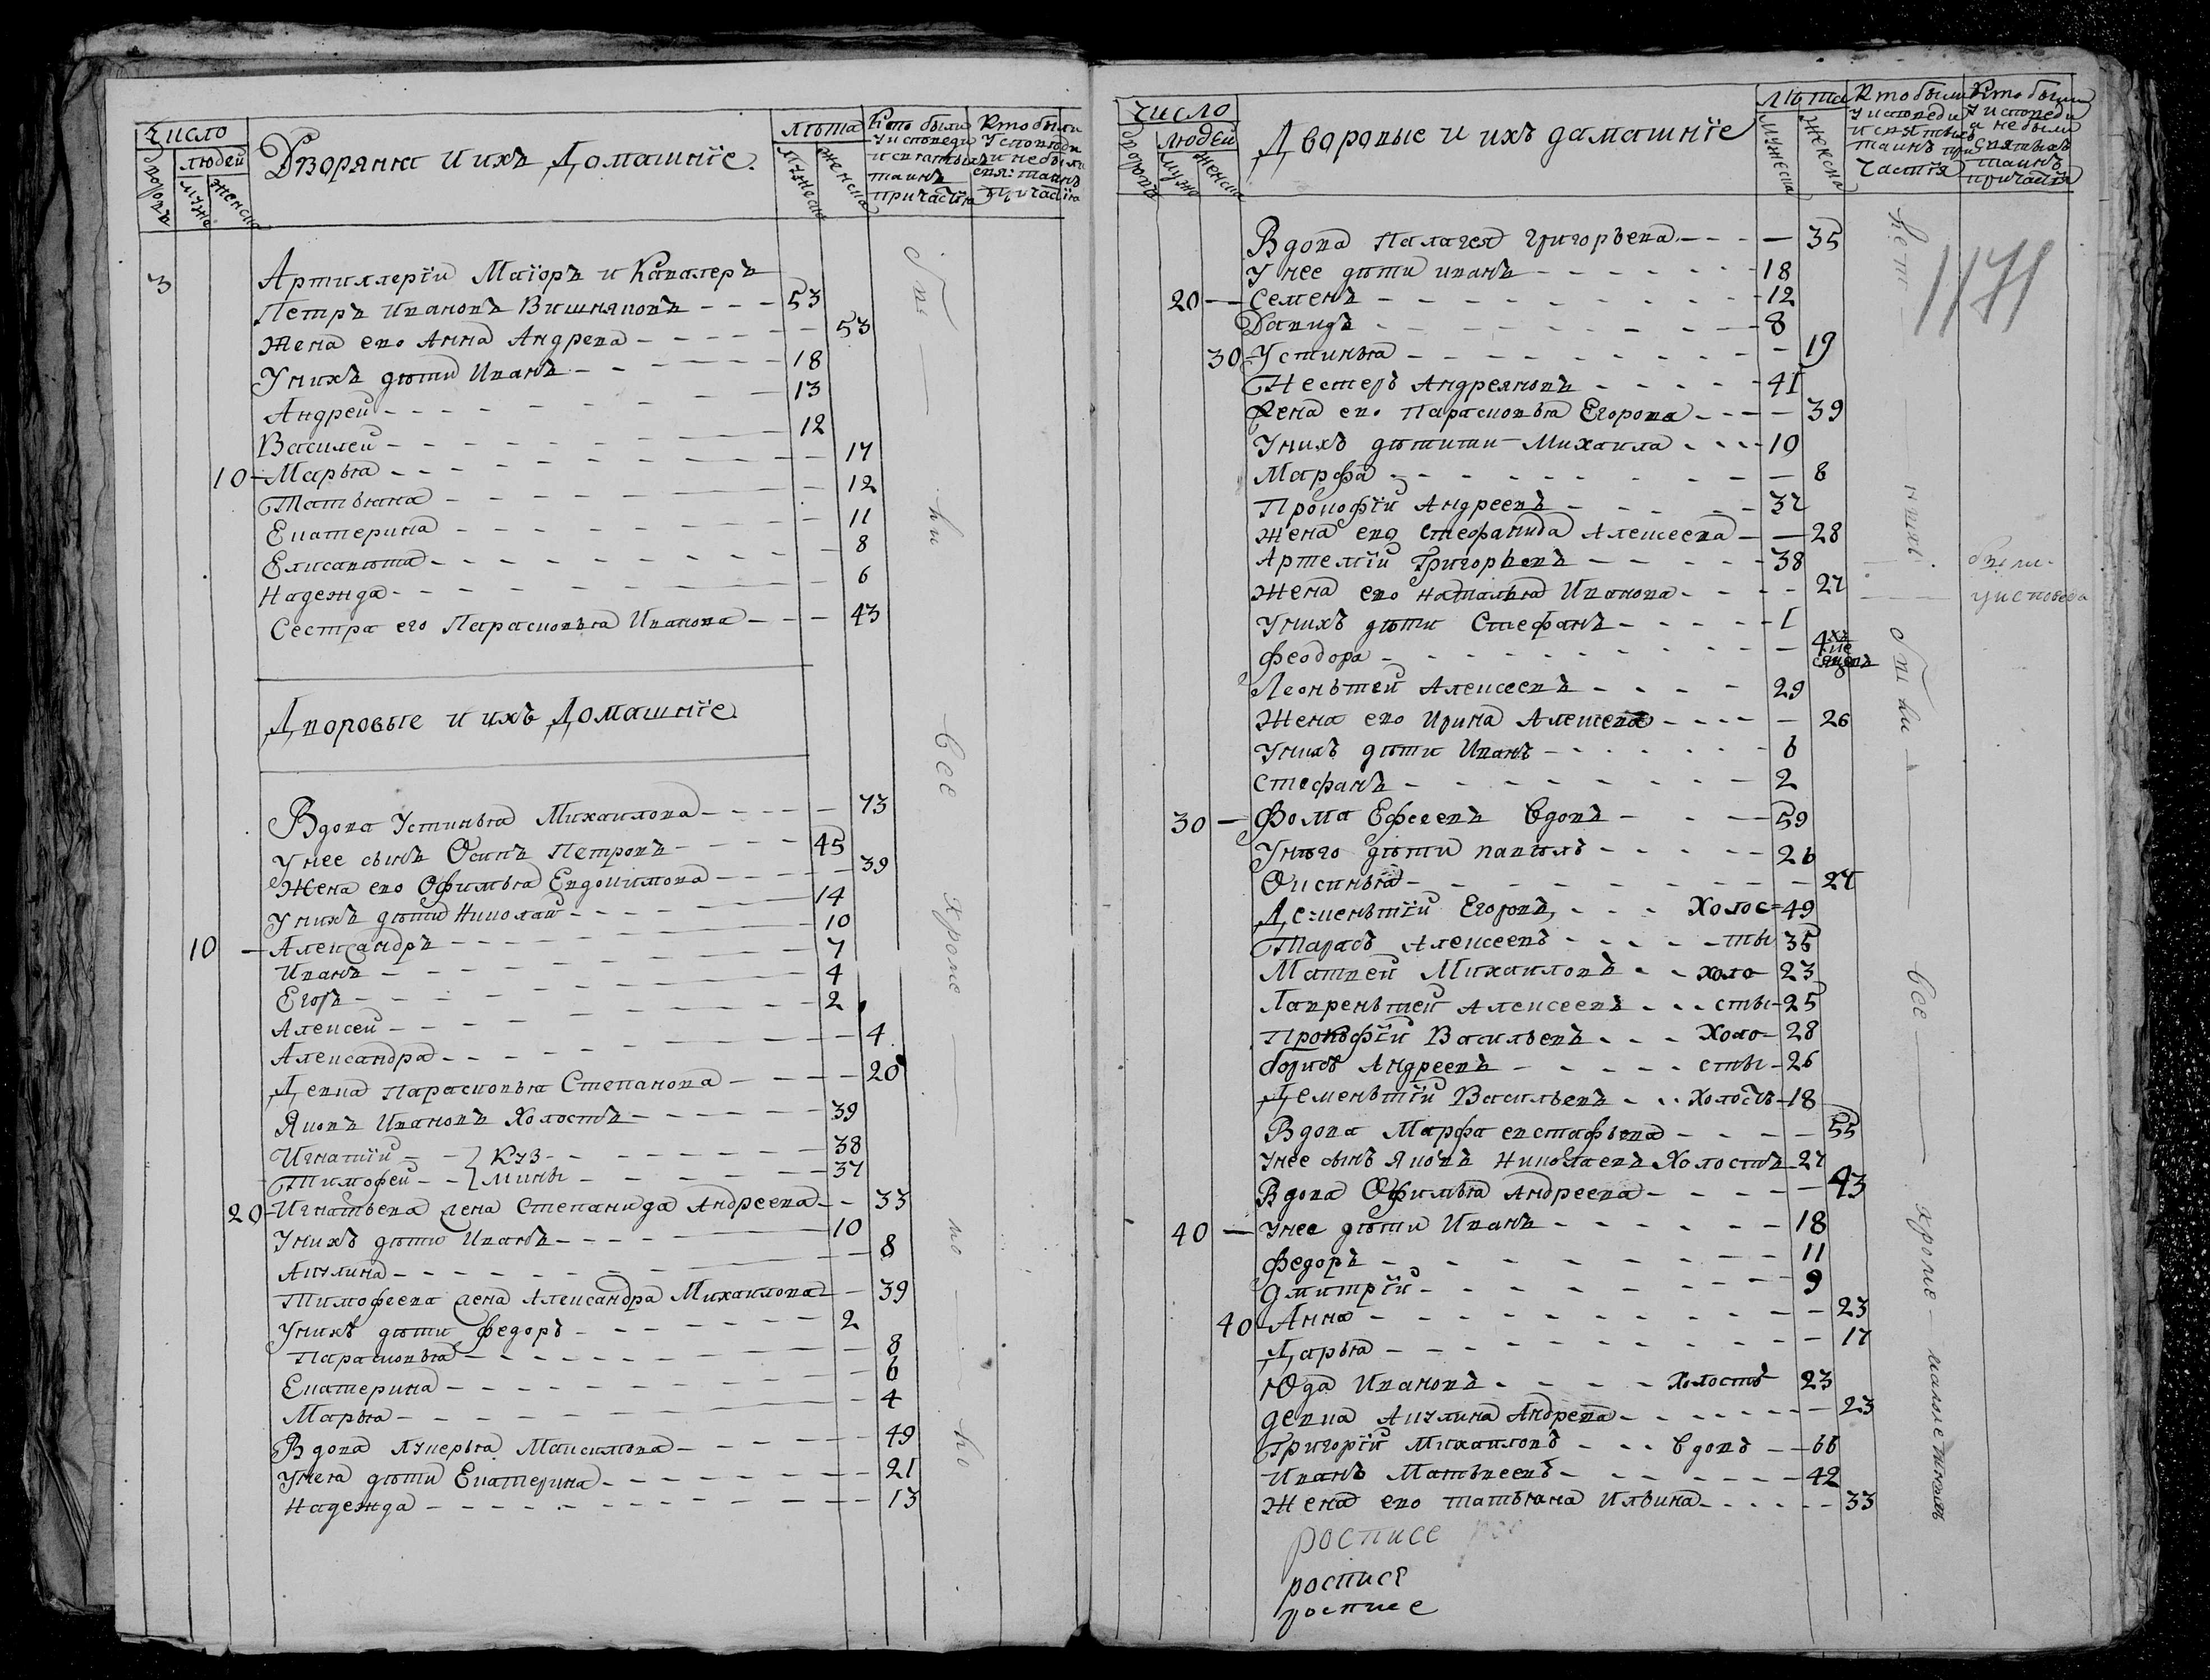 Число
людей
Дворяна и ихъ Домашнїе
лѣта
Кто были
у исповеди
и святыхъ
таинъ
причастїя
Кто были
у исповеди
и не были
свят: таинъ
причастїя
дворовъ
мужс
женска
мужеска
женска
3 Артиллерїи Маїоръ и Кавалеръ
Петръ Ивановъ Вишняковъ 53
Жена ево Анна Андрева 53
У нихъ дѣти Иванъ 18
Андрей 13
Василей 12
10 Марья 17
Татьяна 12
Екатерина 11
Елисавѣта 8
Надежда 6
Сестра его Парасковья Иванова 43
Дворовые и ихъ Домашнїе
Вдова Устинья Михаилова 73
У нее сынъ Осипъ Петровъ 45
Жена ево Офимья Евдокимова 39
У нихъ дѣти Николай 14
10 Александръ 10
Иванъ 7
Егоръ 4
Алексей 2
Александра 4
Девка Парасковья Степанова 20
Яковъ Ивановъ Холостъ 39
Игнатїй Куз 38
Тимофей мины 37
20 Игнатьева жена Степанида Андреева 33
У нихъ дѣти Иванъ 10
Акулина 8
Тимофеева жена Александра Михаилова 39
У нихъ дѣти Федоръ 2
Парасковья 8
Екатерина 6
Марья 4
Вдова Лукерья Максимова 49
У нея дѣти Екатерина 21
Надежда 13
бы ли все кроме но но
Число
людей
Дворовые и ихъ дамашнїе
лѣта
Кто были
у исповеди
и святыхъ
таинъ при
частїя
Кто были
у исповеди
и не были
святыхъ
таинъ
причастїя
дворовъ
мужс
женска
мужеска
женска
1171
Вдова Палагея Григорьева 35
У нее дѣти иванъ 18
20 Семенъ 12
Давидъ 8
30 Устинья 19
Нестеръ Андреяновъ 41
Жена ево Парасковья Егорова 39
У нихъ дѣтити Михаила 10
Марфа 8
Прокофїй Андреевъ 32
Жена ево Стефанида Алексеева 28
Артемїй Григорьевъ 38
Жена ево Наталья Иванова 27
У нихъ дѣти Стефанъ 1
Феодора 4хъ ме сяцовъ
Леонътей Алексеевъ 29
Жена ево Ирина Алексева 26
У нихъ дѣти Иванъ 6
Стефанъ 2
30 Фома Ефеевъ Вдовъ 59
У него дѣти павелъ 26
Оксинья 27
Дементїй Егоровъ Холос 49
Тарасъ Алексеевъ ты 35
Матвей Михаиловъ холо 23
Лаврентей Алексеевъ сты 25
Прокофїй Васильевъ Холо 28
борисъ Андреевъ сты 26
Дементїй Васильевъ Холостъ 18
Вдова Марфа евстафьева 55
У нее сынъ Яковъ Николаевъ Холостъ 27
Вдова Офимья Андреева 43
40 У нее дѣти Иванъ 18
Федоръ 11
Дмитрїй 9
40 Анна 23
Дарья 17
Юда Ивановъ Холостъ 23
девка Акулина Андрева 23
Григорїй Михаиловъ вдовъ 66
Иванъ Матвеевъ 42
Жена ево татьяна Ильина 33
нихъ были все кроме малолетныхъ
были
у исповеда
росписе
росписе
росписе